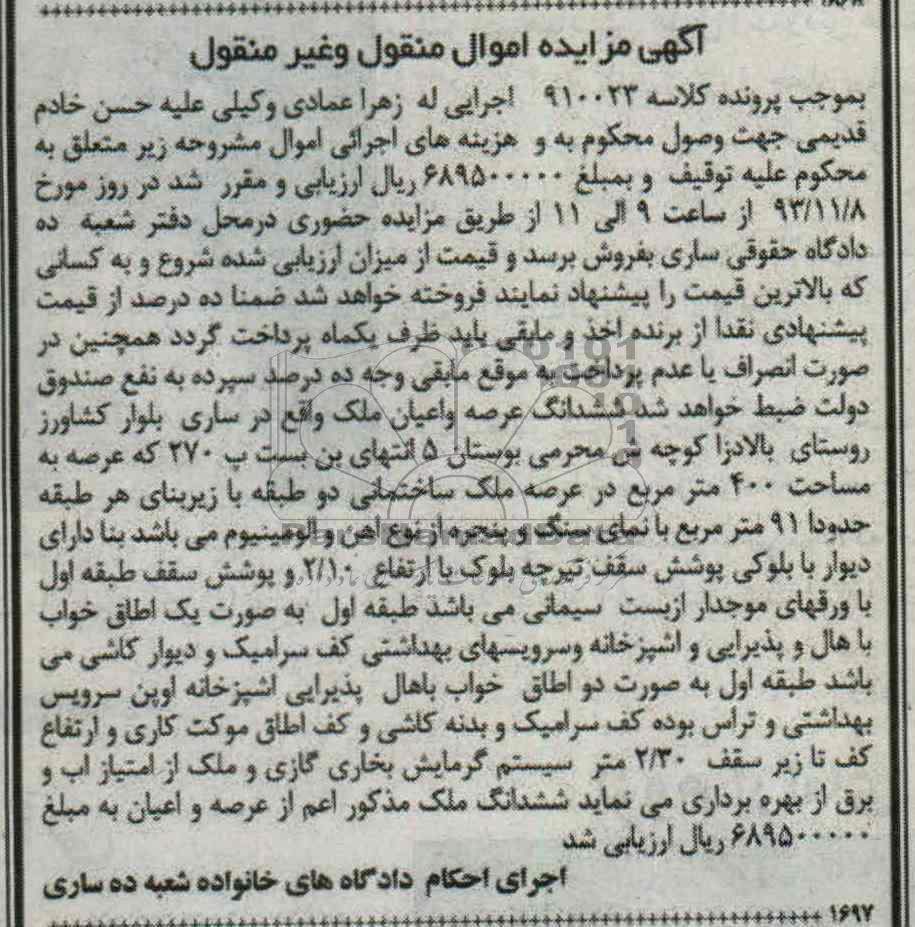 آگهی مزایده اموال منقول وغیر منقول
بموجب پرونده کلاسه ۹۱۰۰۲۳ اجرایی له زهرا عمادی وکیلی علیه حسن خادم
قدیمی جهت وصول محکوم به و هزینه های اجرائی اموال مشروحه زیر متعلق به
محکوم علیه توقیف و بمبلغ ۶۸۹۵۰۰۰۰۰۰ ریال ارزیابی و مقرر شد در روز مورخ
۹۳/۱۱/۸ از ساعت ۹ الی ۱۱ از طریق مزایده حضوری درمحل دفتر شعبه ده
دادگاه حقوقی ساری بفروش برسد و قیمت از میزان ارزیابی شده شروع و به کسانی
که بالاترین قیمت را پیشنهاد نمایند فروخته خواهد شد ضمنا ده درصد از قیمت
پیشنهادی نقدا از برنده اخذ و مابقی باید ظرف یکماه پرداخت گردد همچنین در
صورت انصراف یا عدم پرداخت به موقع مابقی وجه ده درصد سپرده به نفع صندوق
دولت ضبط خواهد شد ششدانگ عرصه واعیان ملک واقع در ساری بلوار کشاورز
روستای بالادزا کوچه ش محرمی بوستان ۵ انتهای بن بست پ ۲۷۰ که عرصه به
مساحت ۴۰۰ متر مربع در عرصه ملک ساختمانی دو طبقه با زیربنای هر طبقه
حدودا ۹۱ متر مربع با نمای سنگ و پنجره از نوع اهن و الومینیوم می باشد بنا دارای
دیوار با بلوکی پوشش سقف تیرچه بلوک با ارتفاع ۲/۱۰ و پوشش سقف طبقه اول
با ورقهای موجدار ازبست سیمانی می باشد طبقه اول به صورت یک اطاق خواب
با هال و پذیرایی و اشپزخانه وسرویسهای بهداشتی کف سرامیک و دیوار کاشی می
باشد طبقه اول به صورت دو اطاق خواب باهال پذیرایی اشپزخانه اوپن سرویس
بهداشتی و تراس بوده کف سرامیک و بدنه کاشی و کف اطاق موکت کاری و ارتفاع
کف تا زیر سقف ۲/۳۰ متر سیستم گرمایش بخاری گازی و ملک از امتیاز اب و
برق از بهره برداری می نماید ششدانگ ملک مذکور اعم از عرصه و اعیان به مبلغ
۶۸۹۵۰۰۰۰۰۰ ریال ارزیابی شد
اجرای احکام دادگاه های خانواده شعبه ده ساری
۱۶۹۷